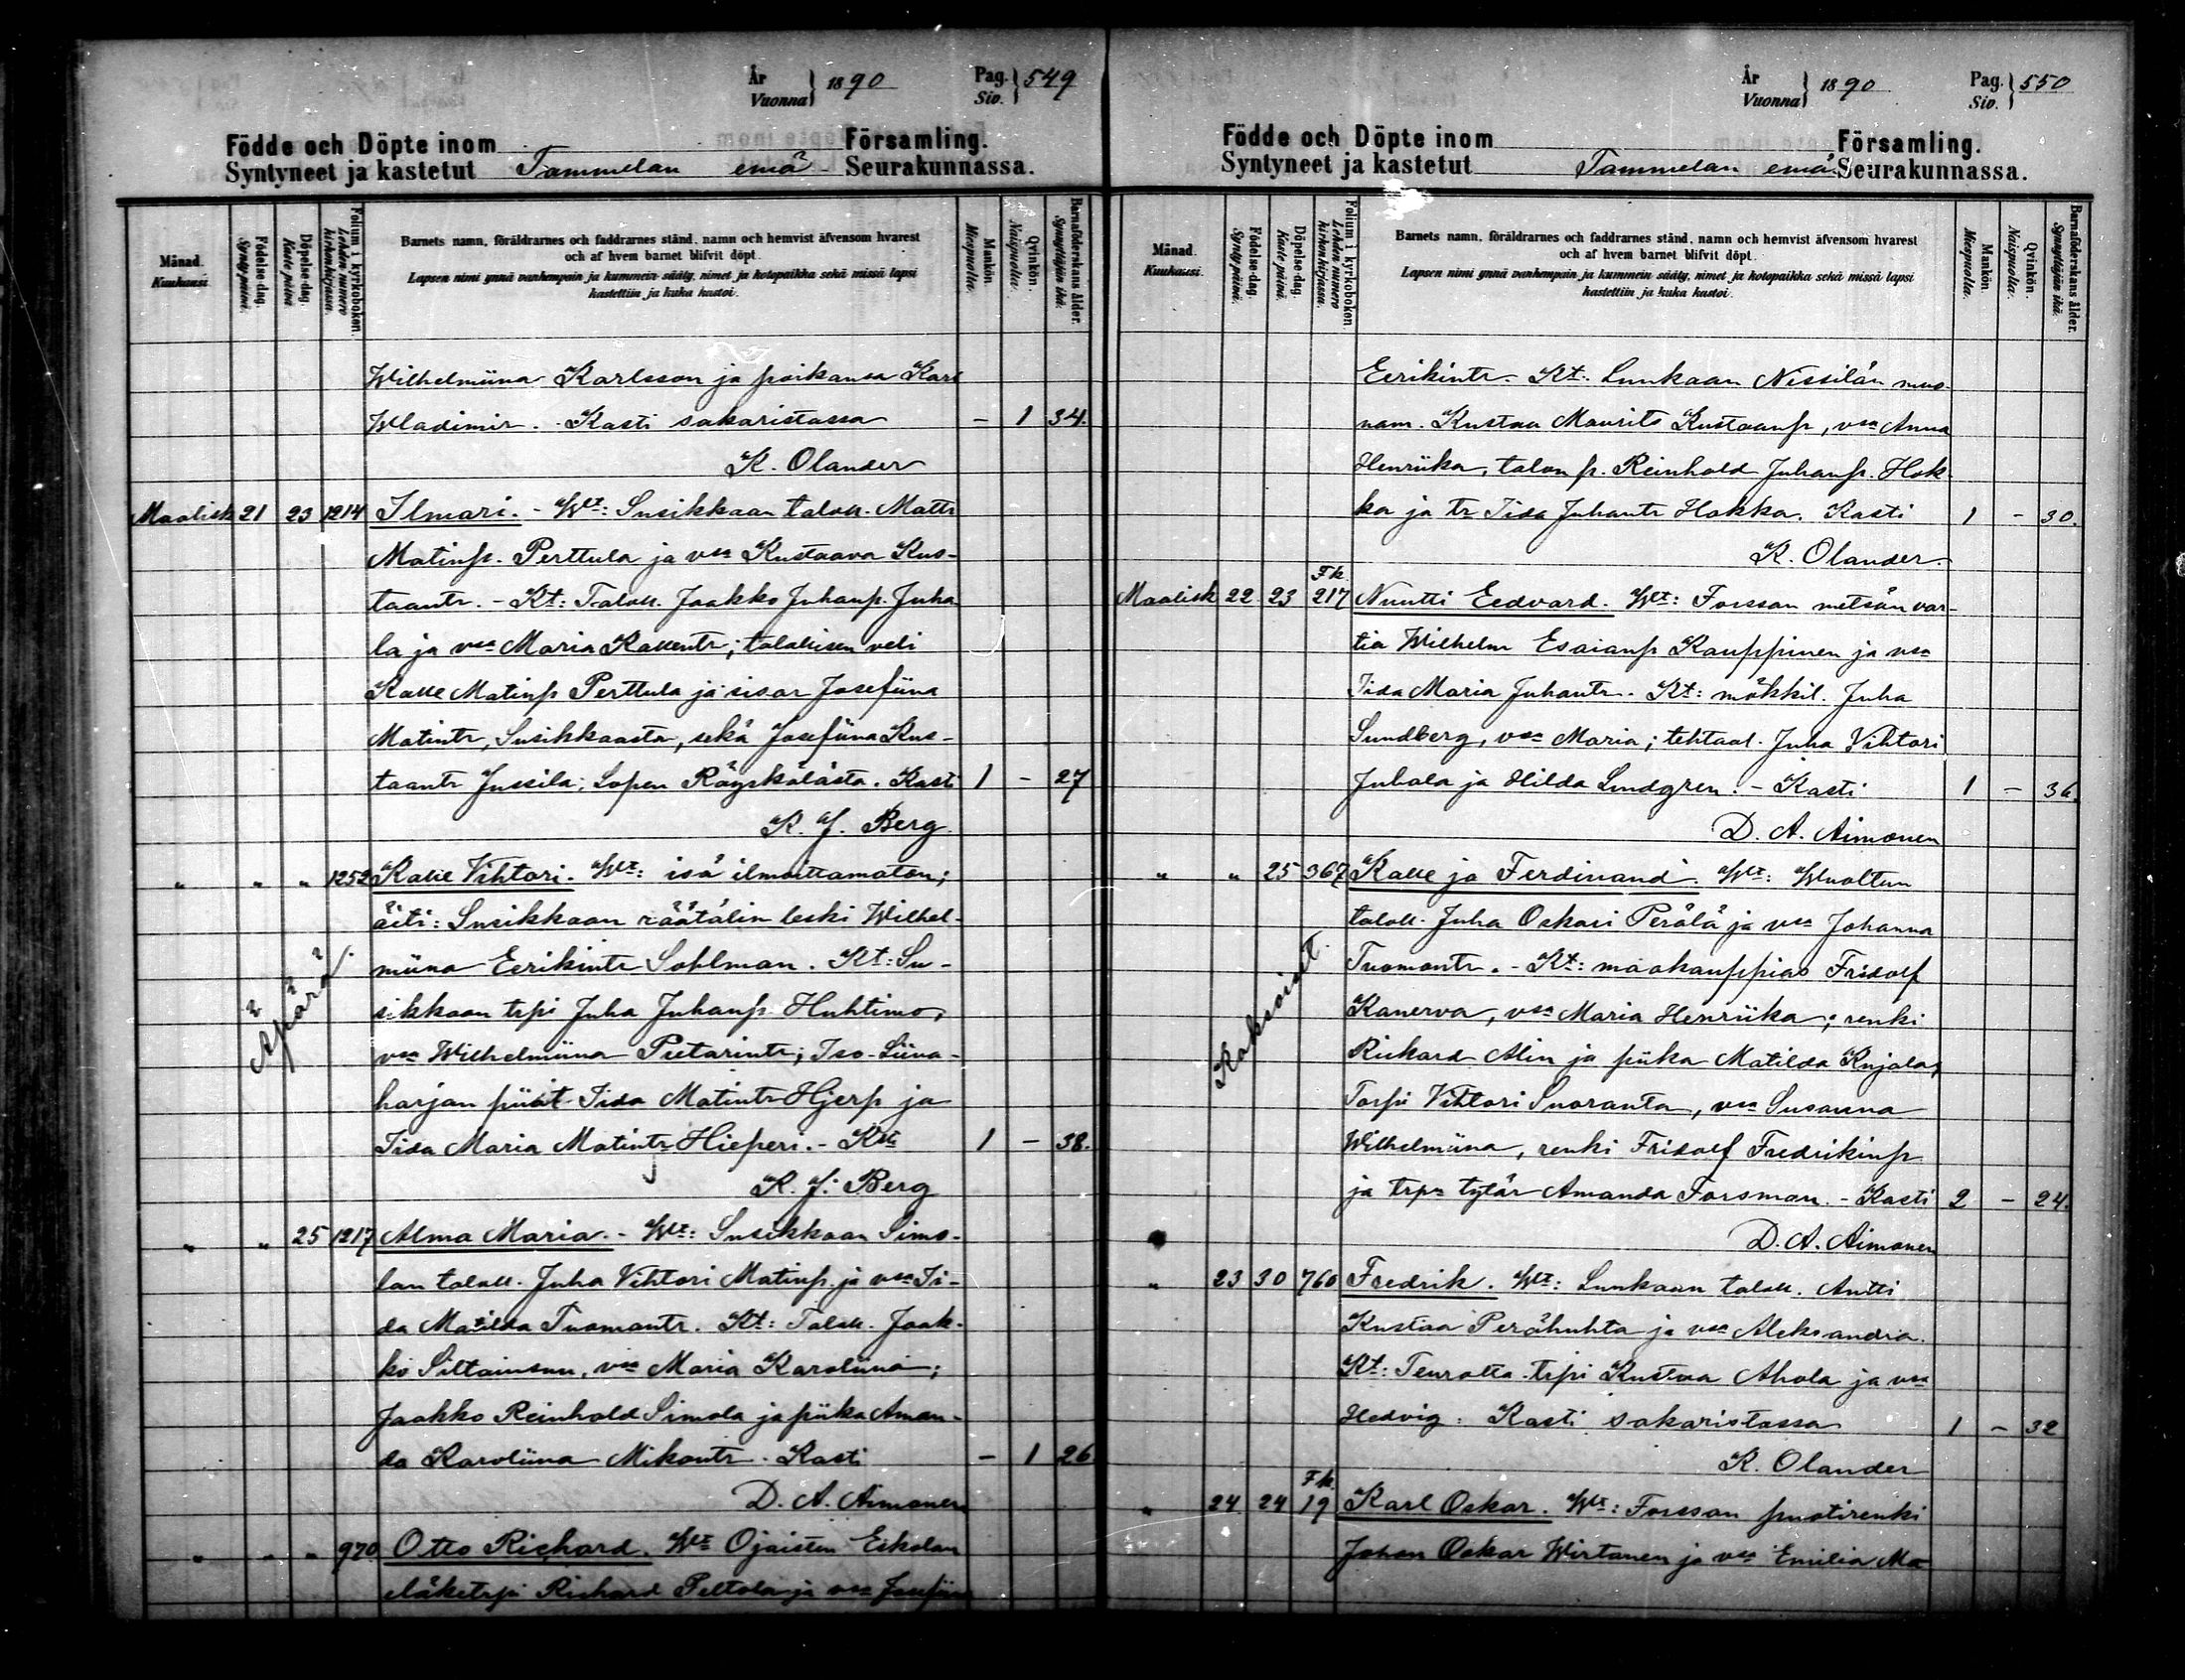 År
Vuonna } 1890
Pag.
Siv. } 549
Födde och Döpte inom Församling.
Syntyneet ja kastetut Tammelan emä- Seurakunnassa.
Månad.
Kuukausi.
Födelse-dag.
Synty-päivä.
Döpelse-dag.
Kaste-päivä.
Folium i kyrkoboken.
Lehden numero kirkonkirjassa.
Barnets namn, föräldrarnes och faddrarnes stånd, namn och hemvist äfvensom hvarest
och af hvem barnet blifvit döpt.
Lapsen nimi ynnä vanhempain ja kummein sääty, nimet ja kotopaikka sekä missä lapsi
kastettiin ja kuka kastoi.
Mankön.
Miespuolia.
Qvinkön.
Naispuolia.
Barnaföderskans ålder.
Synnyttäjän ikä.
Wilhelmiina Karlsson ja poikansa Karl
Wladimir. - Kasti sakaristassa - 1 34.
K. Olander
Maalisk 21 23 1214 Ilmari. - Wt: Susikkaan taloll. Matti
Matinp. Perttula ja vsa Kustaava Kus-
taantr. - Kt: Taloll. Jaakko Juhanp. Juha
la ja vsa Maria Kallentr; talollisen veli
Kalle Matinp Perttula ja sisar Josefiina
Matintr, Susikkaasta, sekä Josefiina Kus-
taantr Jussila, Lopen Räyskälästä. Kasti 1 - 27
K. J. Berg.
" " " 1252 Kalle Vihtori. Wt: isä ilmoittamaton;
äiti: Susikkaan räätälin leski Wilhel-
miina Eerikintr Sohlman. Kt: Su-
sikkaan trpi Juha Juhanp. Huhtimo,
vsa Wilhelmiina Pietarintr; Iso-Liina-
harjan piiat Iida Matintr Hjerp ja
Iida Maria Matintr Hieperi. - Ksti 1 - 38.
K. J. Berg
Äpärä.
" " 25 1217 Alma Maria. - Wt: Susikkaan Simo-
lan taloll. Juha Vihtori Matinp. ja vsa Ii-
da Matilda Tuomantr. Kt: Taloll. Jaak-
ko Siltainsuu, vsa Maria Karoliina;
Jaakko Reinhold Simola ja piika Aman-
da Karoliina Mikontr. Kasti - 1 26
D. A. Aimonen
" " " 970 Otto Richard. Wt: Ojaisten Eskolan
eläketrpi Richard Peltola ja vsa Josefiina
År
Vuonna } 1890
Pag.
Siv. } 550
Födde och Döpte inom Församling.
Syntyneet ja kastetut Tammelan emä Seurakunnassa.
Månad.
Kuukausi.
Födelse-dag.
Synty-päivä.
Döpelse-dag.
Kaste-päivä.
Folium i kyrkoboken.
Lehden numero kirkonkirjassa.
Barnets namn, föräldrarnes och faddrarnes stånd, namn och hemvist äfvensom hvarest
och af hvem barnet blifvit döpt.
Lapsen nimi ynnä vanhempain ja kummein sääty, nimet ja kotopaikka sekä missä lapsi
kastettiin ja kuka kastoi.
Mankön.
Miespuolia.
Qvinkön.
Naispuolia.
Barnaföderskans ålder.
Synnyttäjän ikä.
Eerikintr. Kt: Lunkaan Nissilän muo-
nam. Kustaa Maurits Kustaanp, vsa Anna
Henriika, talon p. Reinhold Juhanp. Hok-
ka ja tr Iida Juhantr Hokka. Kasti 1 - 30.
K. Olander.
Maalisk 22 23 Fk. 217 Nuutti Eedvard. Wt: Forssan metsänvar-
tia Wilhelm Esaianp Kauppinen ja vsa
Iida Maria Juhantr. Kt: mökkil. Juha
Sundberg, vsa Maria; tehtaal. Juha Vihtori
Juhola ja Hilda Lindgren. - Kasti 1 - 36.
D. A. Aimonen
" " 25 367 Kalle ja Ferdinand. Wt: Wuoltun
taloll. Juha Oskari Perälä ja vsa Johanna
Tuomantr. - Kt: maakauppias Fridolf
Kanerva, vsa Maria Henriika; renki
Rickard Alin ja piika Matilda Kujala,
Torpi Vihtori Suoranta, vsa Susanna
Wilhelmiina, renki Fridolf Fredrikinp
ja trpn tytär Amanda Forsman. - Kasti 2 - 24.
D. A. Aimonen
Kaksoiset.
" 23 30 760 Fredrik. Wt: Lunkaan taloll. Antti
Kustaa Perähuhta ja vsa Aleksandra.
Kt: Teurolta trpi Kustaa Ahola ja vsa
Hedvig. Kasti sakaristassa 1 - 32
K. Olander
" 24 24 Fk. 19 Karl Oskar. Wt: Forssan puotirenki
Johan Oskar Wirtanen ja vsa Emilia Ma